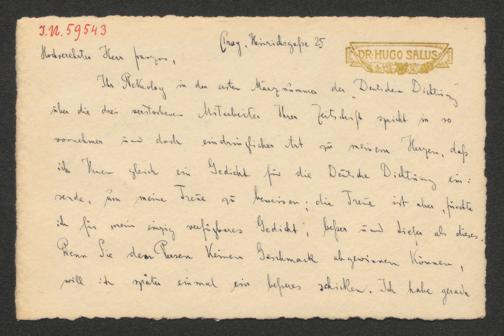 I.N. 59543
Prag, Heinrichsgaße 25
DR. HUGO SALUS
Hochverehrter Herr Franzos,
Ihr Nekrolog in der ersten Märznummer der „Deutschen Dichtung"
über die drei verstorbenen Mitarbeiter Ihrer Zeitschrift spricht in so
vornehmer und doch eindringlicher Art zu meinem Herzen, daß
ich Ihnen gleich ein Gedicht für die Deutsche Dichtung ein-
sende, um meine Treue zu beweisen; die Treue ist aber, fürchte
ich für mein einzig verfügbares Gedicht, beßer und tiefer als dieses.
Wenn Sie dem Poem keinen Geschmack abgewinnen können,
will ich später einmal ein beßeres schicken. Ich habe gerade